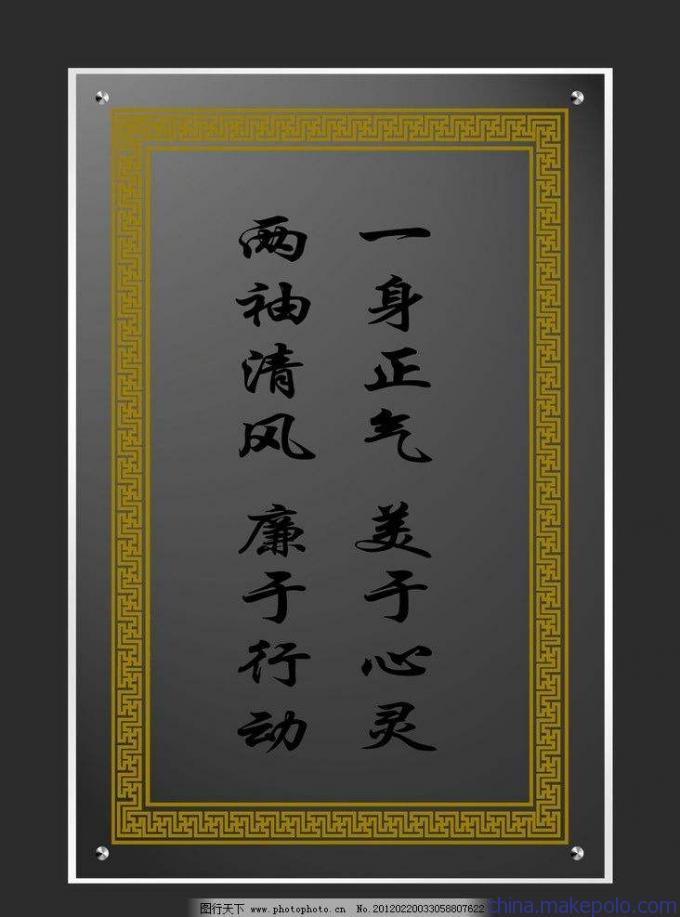 一身正气 美于心灵
两袖清风 廉于行动
图行天下 www.photophoto.cn No.20120220033058807622
china.makepolo.com